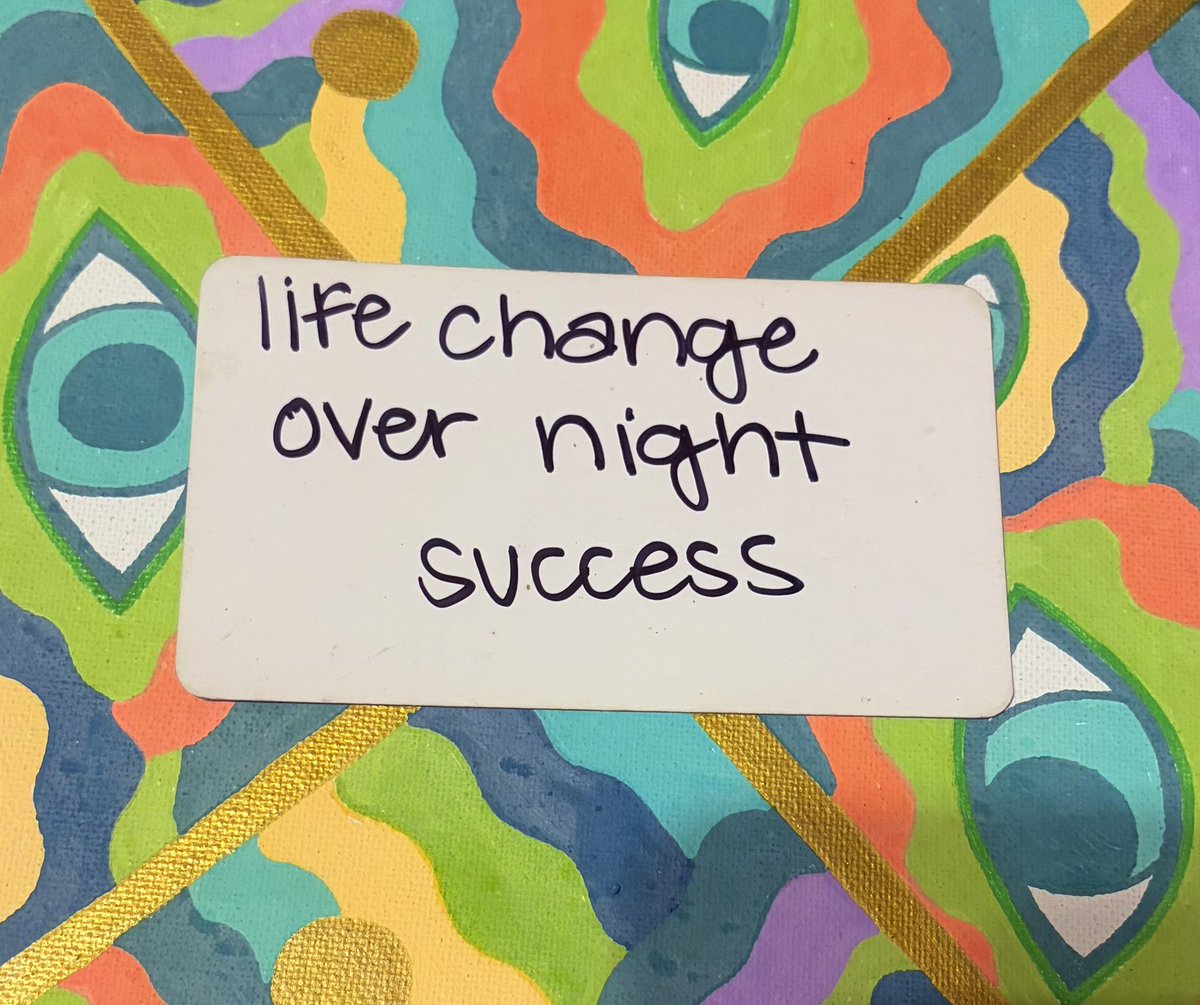 life change
over night
success